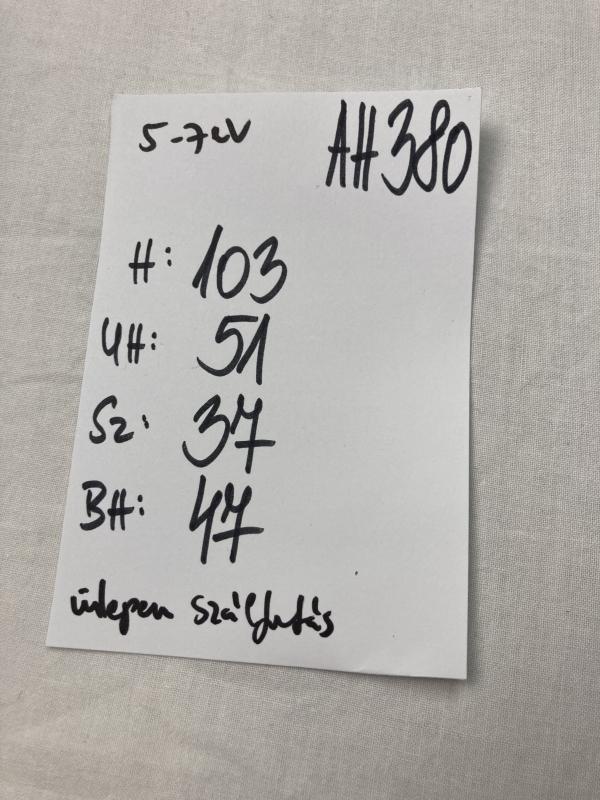 5-7 év AH380
H: 103
UH: 51
Sz: 37
BH: 47
ülepen szálfutás